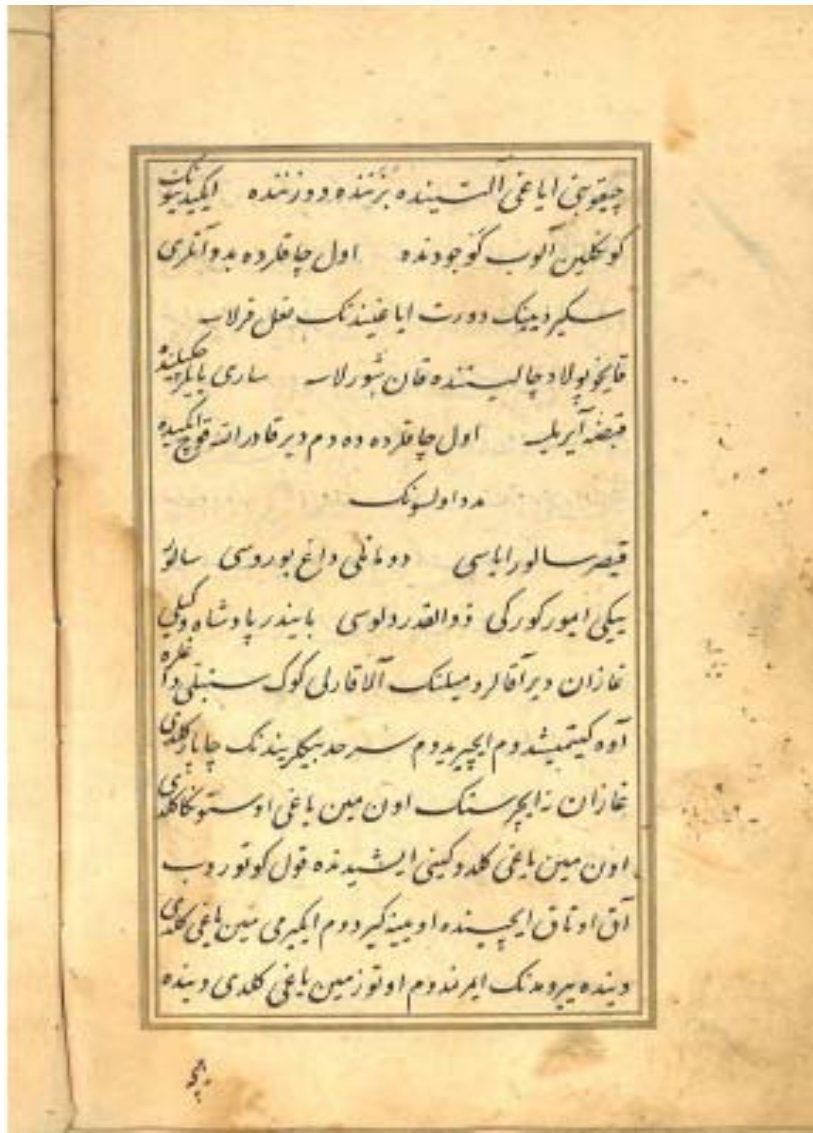 چیقوبنی ایاغی آلتسینده بزننده دوزننده ایکیدنیونک
کونکلین آلوب کوجودنده اول چاقلرده بدو آتلری
سکیردینیک دورت ایاغیندنک نعل قرلاب
پولاد چالیسننده قان شورلاب ساری یایلر چکیلینده
قبضه آیریلب اول چاقلرده ده دم دیر قادر الله قوچ ایکیده
مدد اولسونک
قیصر سالور ایاسی دومانلی داغ بوروسی سالور
بیکی ایمور کورکی ذوالقدر دلوسی بایندر پادشاه وکیلی
غازان دیر آقالر دمیلنک آلا قارلی کوک سنبلی داغلره
آوه کیتمیشدوم ایچیریدوم سرحد بیکلریندنک چاپار کلدی
غازان نه ایچرسنک اون مین یاغی اوستونکا کلدی
اون مین یاغی کلدوکینی ایشیدنده قول کوتوروب
آق اوتاق ایچسینده اوییمه کیردوم ایکیرمی مین یاغی کلدی
دینده ییرومدنک ایمرندوم اوتوز مین یاغی کلدی دینده